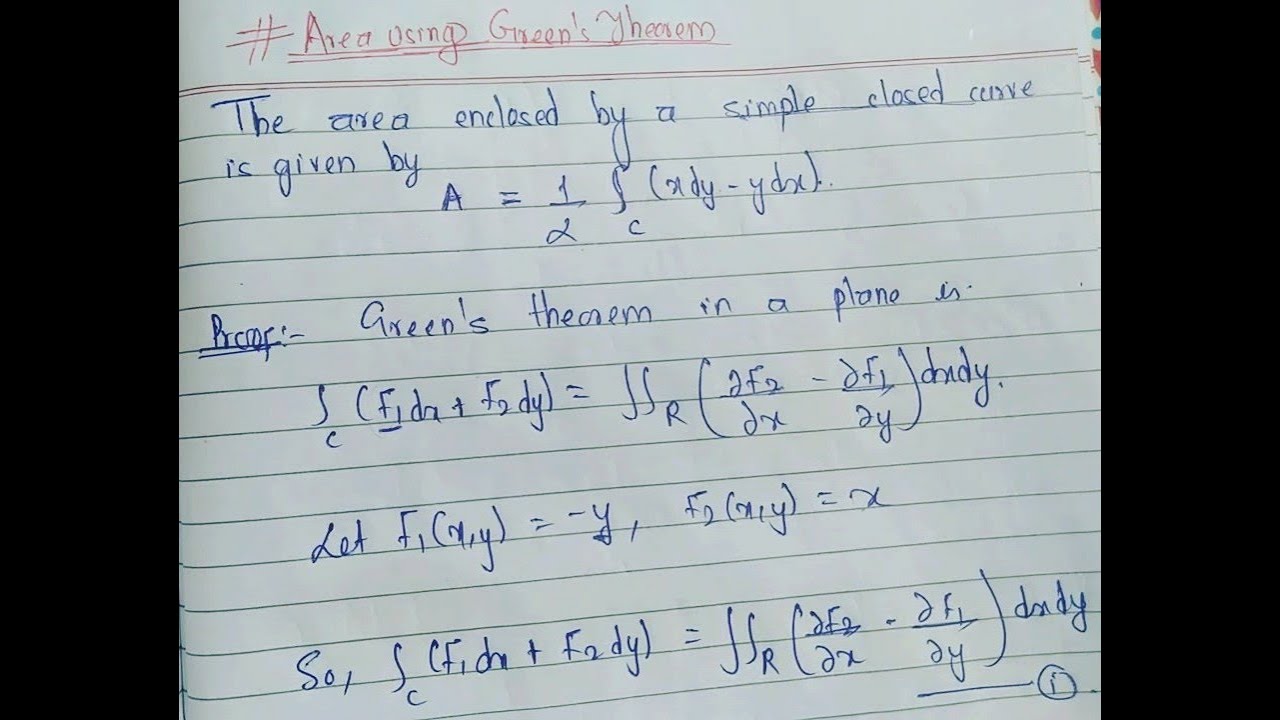 # Area using Green's Theorem
The area enclosed by a simple closed curve
is given by
A = 1/2 ∮_C (xdy - ydx).
Proof:- Green's theorem in a plane is.
∫_C (F₁dx + F₂dy) = ∬_R (∂F₂/∂x - ∂F₁/∂y) dxdy.
Let F₁(x,y) = -y, F₂(x,y) = x
So, ∫_C (F₁dx + F₂dy) = ∬_R (∂F₂/∂x - ∂F₁/∂y) dxdy
—— ①